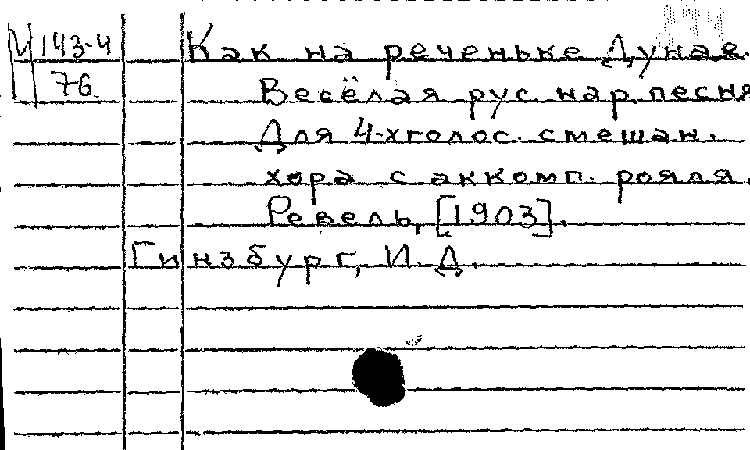 И 143-4 Как на реченьке Дунае.
76. Весёлая рус. нар. песня
Для 4-хголос. смешан.
хора с аккомп. рояля.
Ревель, [1903].
Гинзбург, И. Д.